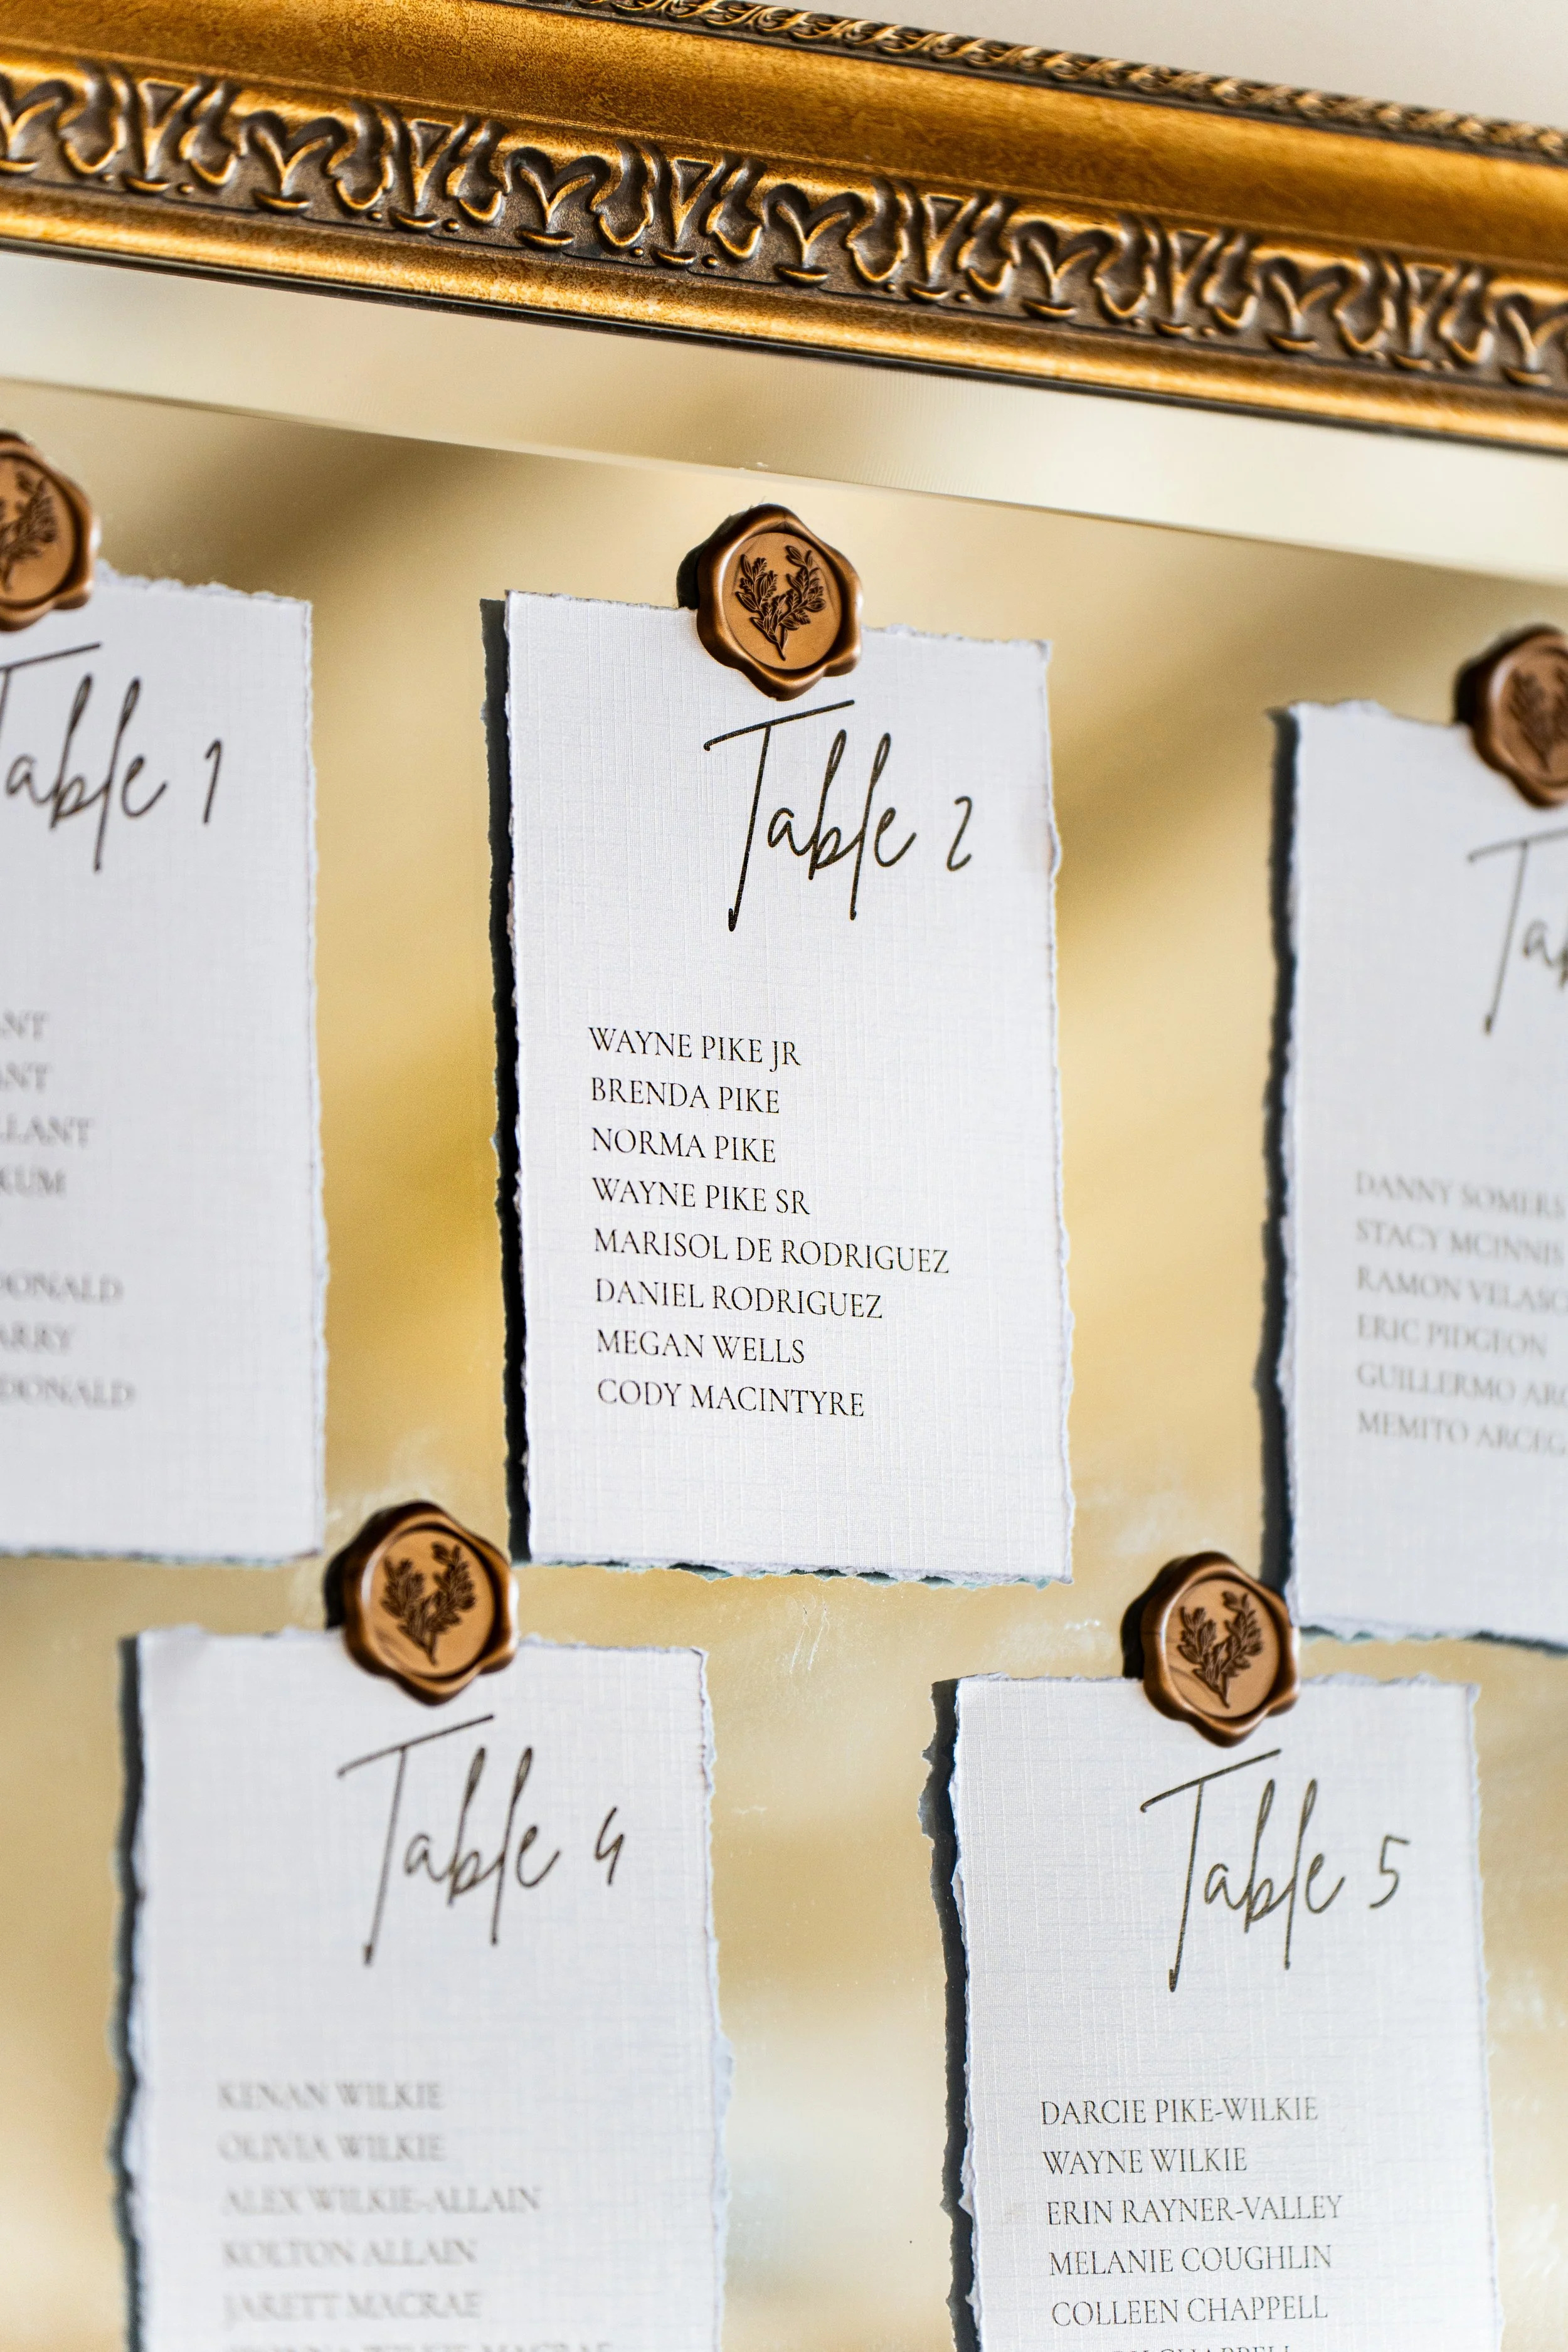 Table 1
DONALD
DONALD
Table 2
WAYNE PIKE JR
BRENDA PIKE
NORMA PIKE
WAYNE PIKE SR
MARISOL DE RODRIGUEZ
DANIEL RODRIGUEZ
MEGAN WELLS
CODY MACINTYRE
DANNY SOMERS
STACY MCINNIS
RAMON
ERIC PIDGEON
GUILLERMO
MEMITO
Table 4
KENAN WILKIE
OLIVIA WILKIE
ALEX WILKIE-ALLAIN
KOLTON ALLAIN
JARETT MACRAE
Table 5
DARCIE PIKE-WILKIE
WAYNE WILKIE
ERIN RAYNER-VALLEY
MELANIE COUGHLIN
COLLEEN CHAPPELL